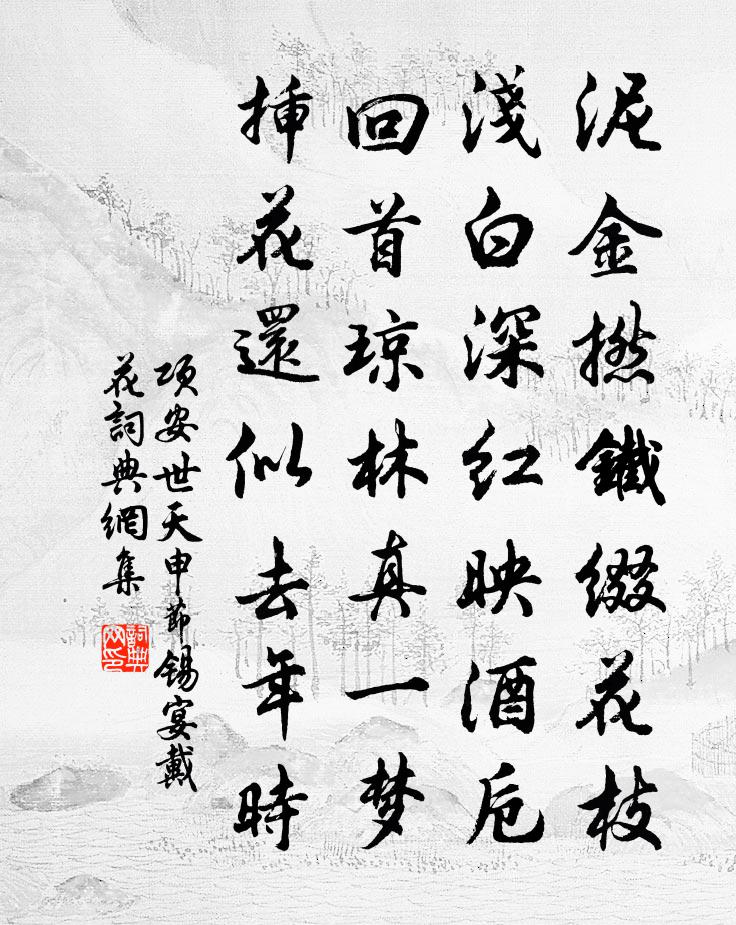 泥金撚鐵綴花枝
淺白深紅映酒卮
回首琼林真一梦
挿花還似去年時
项安世天申節锡宴戴
花詞典網集
詞典网印